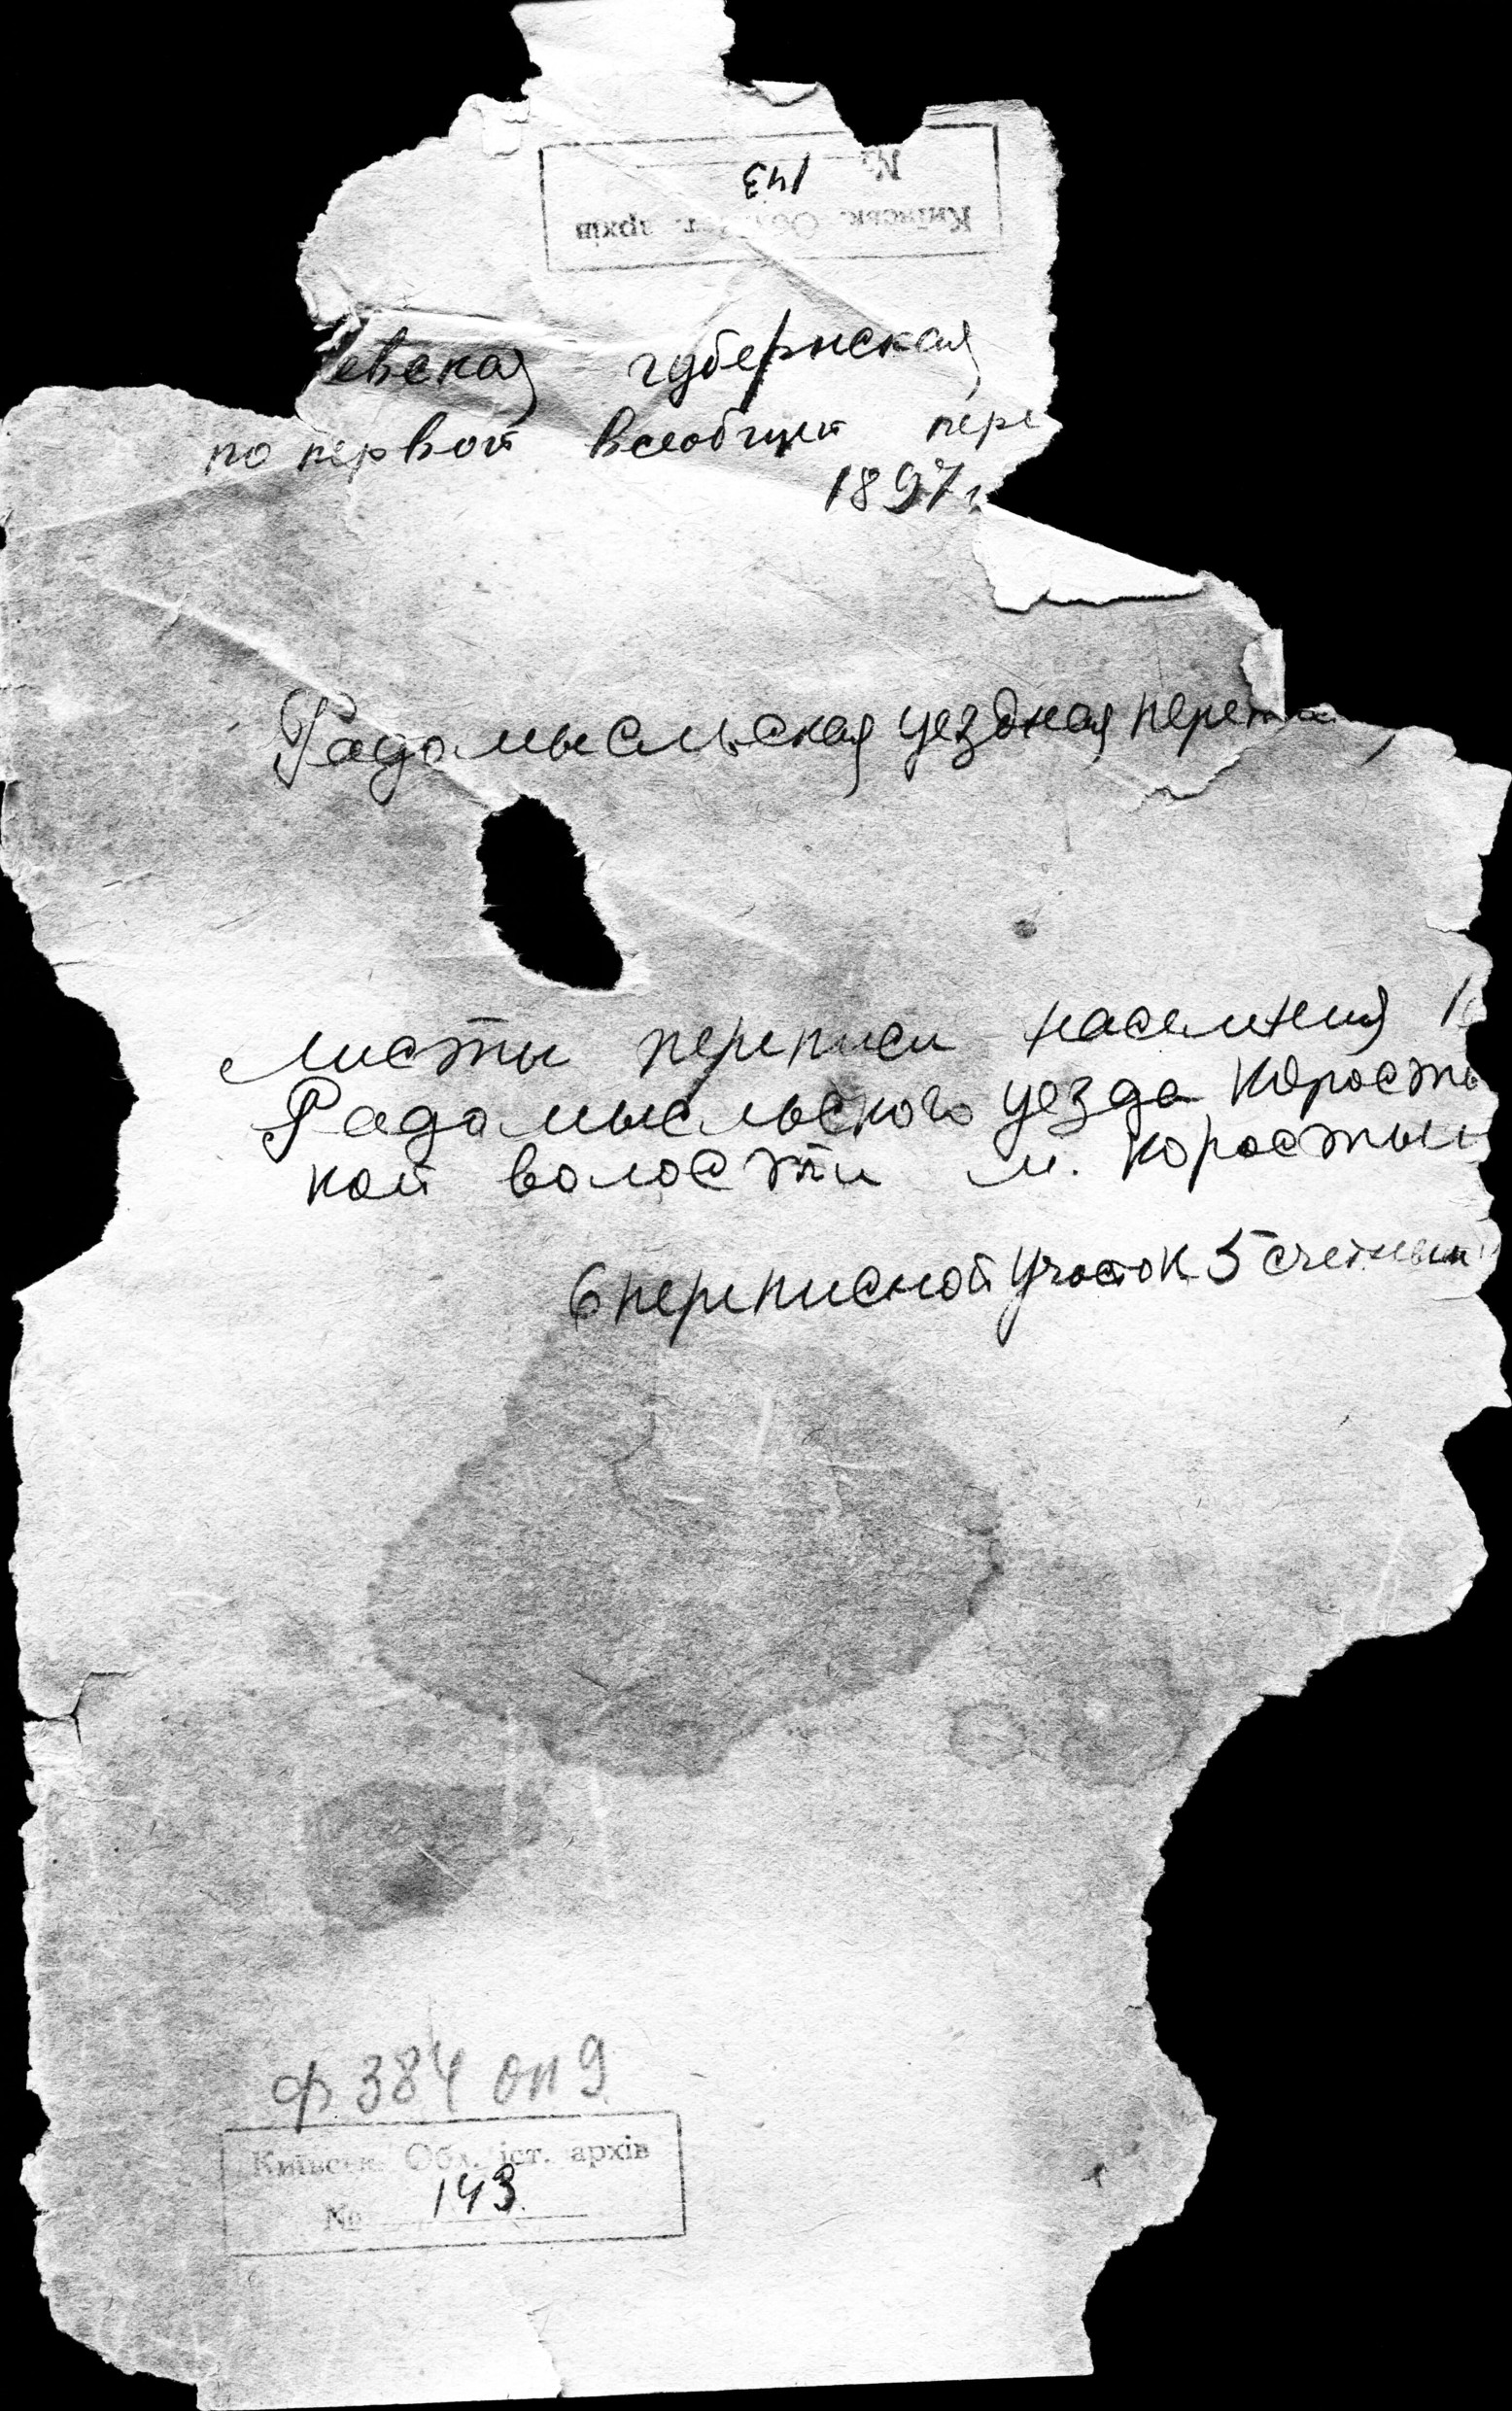 № 143
Київськ. Об іст. архів
евская губернская
по первой всеобщей пере
1897 г
Радомысльская уездная перепис
листы переписи населения К
Радомысльского уезда Коросты
кой волости м. Коростыш
6 переписной участок 5 счетный
ф. 384 оп 9
Київськ. Обл. іст. архів
№ 143.